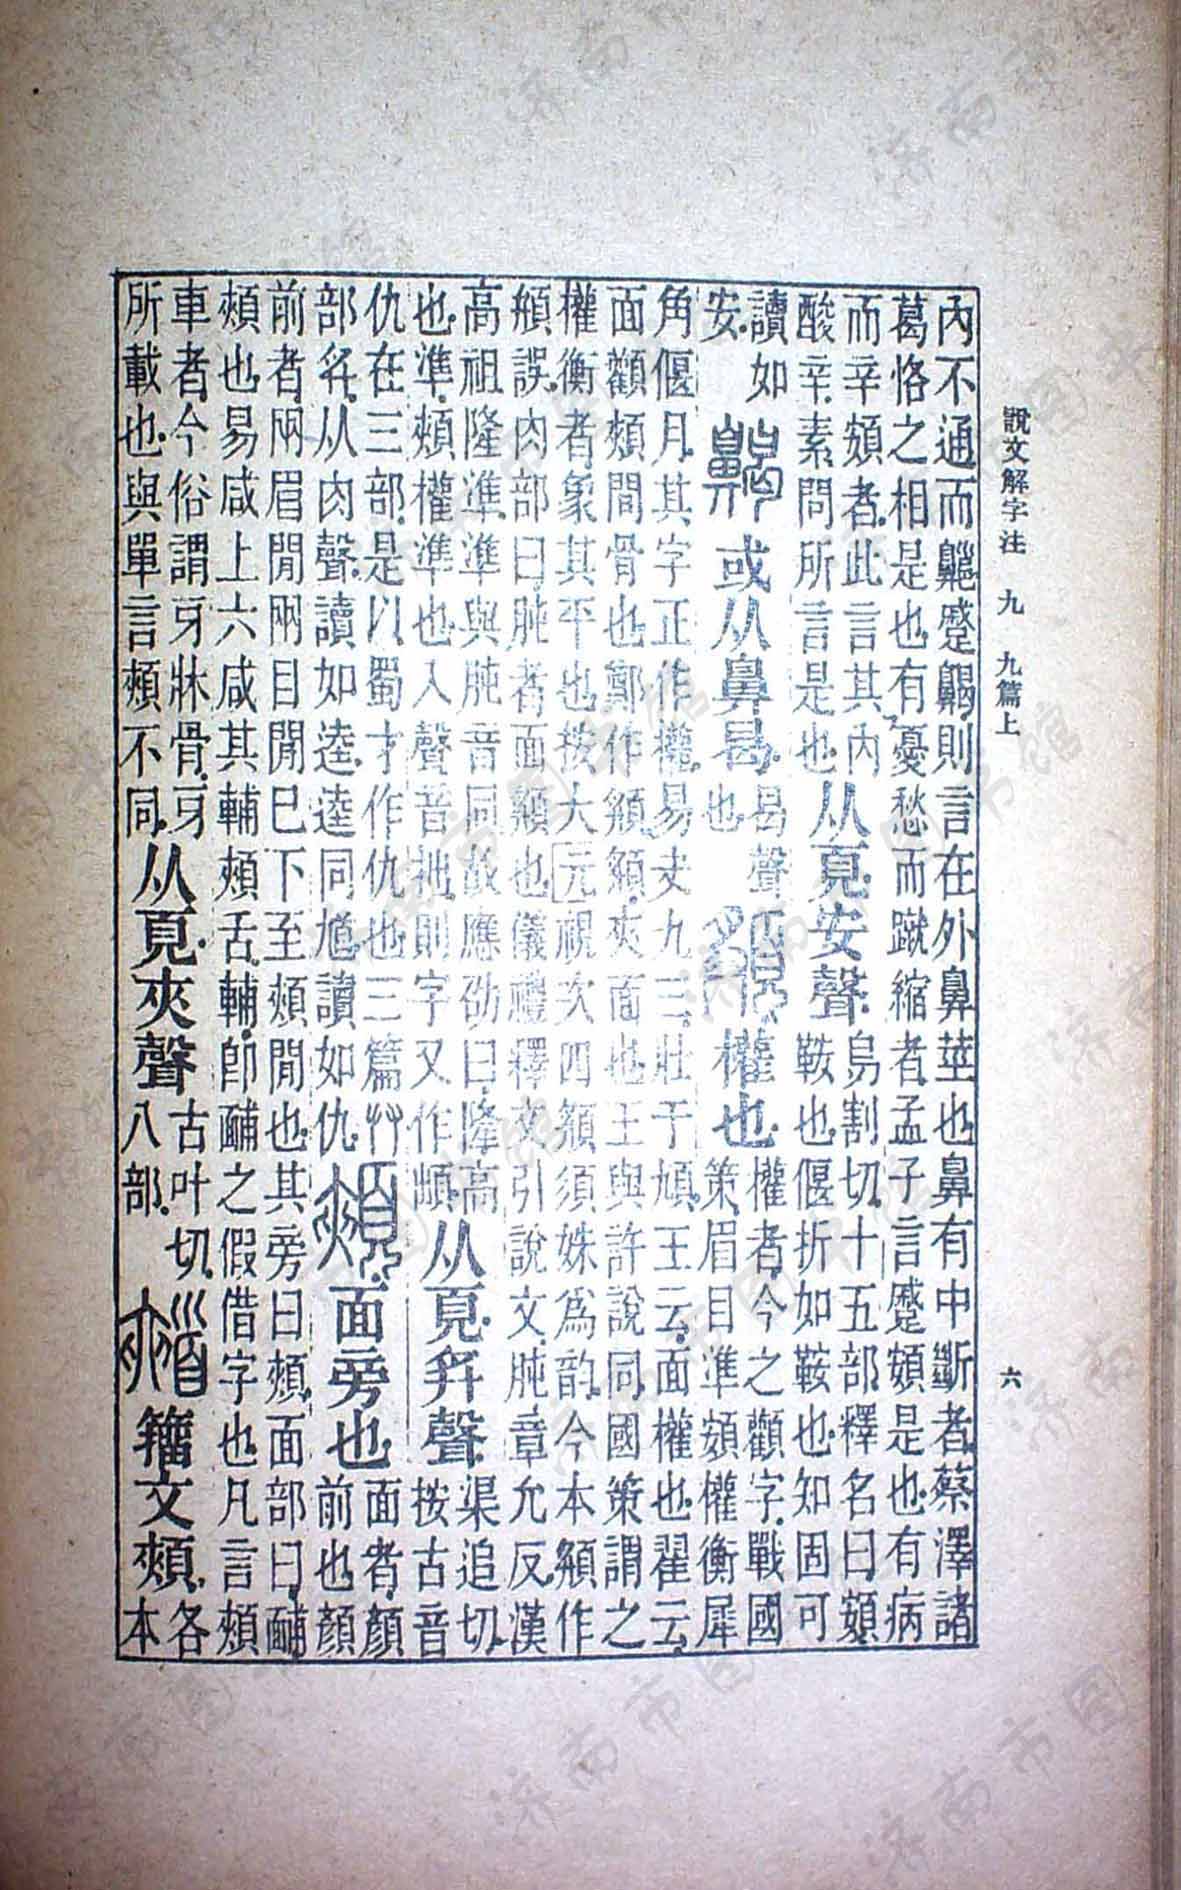 說文解字注 九 九篇上
六
內不通而齆蹙齃則言在外鼻莖也鼻有中斷者蔡澤諸
葛恪之相是也有憂愁而蹴縮者孟子言蹙頞是也有病
而辛頞者此言其內
酸辛素問所言是也
从頁安聲
烏割切十五部釋名曰頞
鞍也偃折如鞍也知固可
讀如
安
齃
或从鼻曷
曷聲
也
頯
權也
權者今之顴字戰國
策眉目準頞權衡犀
角偃月其字正作權易夬九三壯于頄王云面權也翟云
面顴頰間骨也鄭作頯頯夾面也王與許說同國策謂之
權衡者象其平也按大元視次四頯須姝爲韵今本頯作
誤肉部曰肫者面頯也儀禮釋文引說文肫章允反漢
高祖隆準準與肫音同故應劭曰隆高
也準頰權準也入聲音拙則字又作
从頁𢍏聲
渠追切
按古音
仇在三部是以蜀才作仇也三篇艸
部从肉聲讀如逵逵同馗讀如仇
頰
面旁也
面者顏
前也顏
前者兩眉閒兩目閒巳下至頰閒也其旁曰頰面部曰酺
頰也易咸上六咸其輔頰舌輔卽酺之假借字也凡言頰
車者今俗謂牙牀骨牙
所載也與單言頰不同
从頁夾聲
古叶切
八部
籒文頰
各
本
济南市图书馆